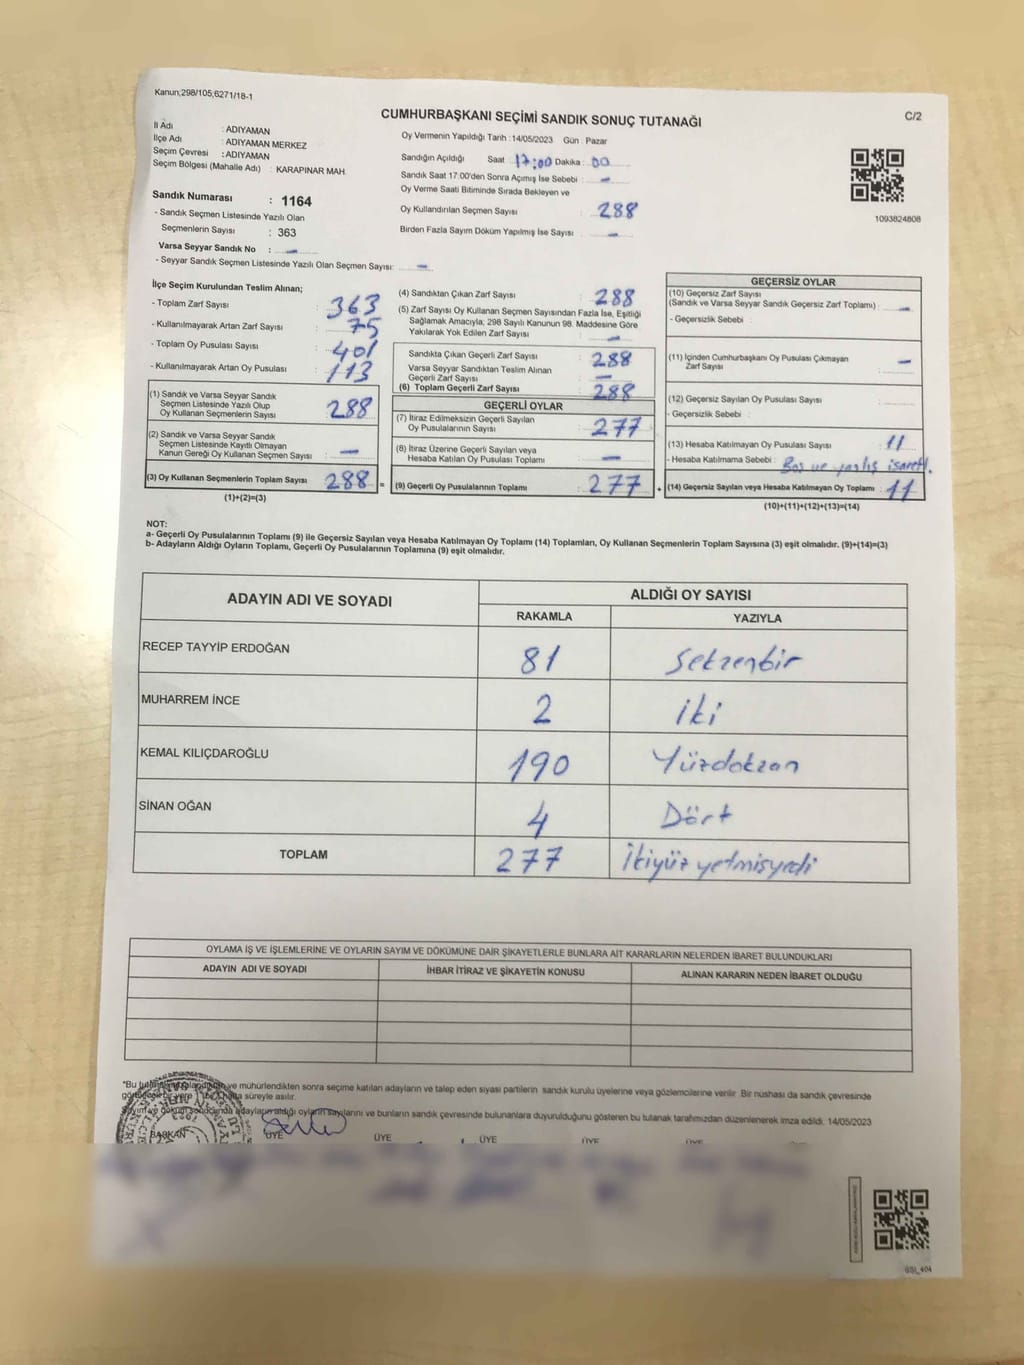 Kanun;298/105;6271/18-1
CUMHURBAŞKANI SEÇİMİ SANDIK SONUÇ TUTANAĞI
C/2
İl Adı : ADIYAMAN
İlçe Adı : ADIYAMAN MERKEZ
Seçim Çevresi : ADIYAMAN
Seçim Bölgesi (Mahalle Adı) : KARAPINAR MAH.
Sandık Numarası : 1164
- Sandık Seçmen Listesinde Yazılı Olan
Seçmenlerin Sayısı : 363
Varsa Seyyar Sandık No : -
- Seyyar Sandık Seçmen Listesinde Yazılı Olan Seçmen Sayısı: -
Oy Vermenin Yapıldığı Tarih : 14/05/2023 Gün : Pazar
Sandığın Açıldığı Saat 17:00 Dakika : 00
Sandık Saat 17:00'den Sonra Açımış İse Sebebi : -
Oy Verme Saati Bitiminde Sırada Bekleyen ve
Oy Kullandırılan Seçmen Sayısı : 288
Birden Fazla Sayım Döküm Yapılmış İse Sayısı : -
1093824808
İlçe Seçim Kurulundan Teslim Alınan;
- Toplam Zarf Sayısı : 363
- Kullanılmayarak Artan Zarf Sayısı : 75
- Toplam Oy Pusulası Sayısı : 401
- Kullanılmayarak Artan Oy Pusulası : 113
(1) Sandık ve Varsa Seyyar Sandık
Seçmen Listesinde Yazılı Olup
Oy Kullanan Seçmenlerin Sayısı : 288
(2) Sandık ve Varsa Seyyar Sandık
Seçmen Listesinde Kayıtlı Olmayan
Kanun Gereği Oy Kullanan Seçmen Sayısı : -
(3) Oy Kullanan Seçmenlerin Toplam Sayısı : 288 =
(1)+(2)=(3)
(4) Sandıktan Çıkan Zarf Sayısı : 288
(5) Zarf Sayısı Oy Kullanan Seçmen Sayısından Fazla İse, Eşitliği
Sağlamak Amacıyla; 298 Sayılı Kanunun 98. Maddesine Göre
Yakılarak Yok Edilen Zarf Sayısı : -
Sandıkta Çıkan Geçerli Zarf Sayısı : 288
Varsa Seyyar Sandıktan Teslim Alınan
Geçerli Zarf Sayısı : -
(6) Toplam Geçerli Zarf Sayısı : 288
GEÇERLİ OYLAR
(7) İtiraz Edilmeksizin Geçerli Sayılan
Oy Pusulalarının Sayısı : 277
(8) İtiraz Üzerine Geçerli Sayılan veya
Hesaba Katılan Oy Pusulası Toplamı : -
(9) Geçerli Oy Pusulalarının Toplamı : 277 +
GEÇERSİZ OYLAR
(10) Geçersiz Zarf Sayısı
(Sandık ve Varsa Seyyar Sandık Geçersiz Zarf Toplamı) : -
- Geçersizlik Sebebi :
(11) İçinden Cumhurbaşkanı Oy Pusulası Çıkmayan
Zarf Sayısı : -
(12) Geçersiz Sayılan Oy Pusulası Sayısı :
- Geçersizlik Sebebi :
(13) Hesaba Katılmayan Oy Pusulası Sayısı : 11
- Hesaba Katılmama Sebebi : Boş ve yanlış işaret.
(14) Geçersiz Sayılan veya Hesaba Katılmayan Oy Toplamı : 11
(10)+(11)+(12)+(13)=(14)
NOT:
a- Geçerli Oy Pusulalarının Toplamı (9) ile Geçersiz Sayılan veya Hesaba Katılmayan Oy Toplamı (14) Toplamları, Oy Kullanan Seçmenlerin Toplam Sayısına (3) eşit olmalıdır. (9)+(14)=(3)
b- Adayların Aldığı Oyların Toplamı, Geçerli Oy Pusulalarının Toplamına (9) eşit olmalıdır.
ADAYIN ADI VE SOYADI ALDIĞI OY SAYISI
RAKAMLA YAZIYLA
RECEP TAYYİP ERDOĞAN 81 Seksenbir
MUHARREM İNCE 2 iki
KEMAL KILIÇDAROĞLU 190 Yüzdoksan
SİNAN OĞAN 4 Dört
TOPLAM 277 İkiyüz yetmişyedi
OYLAMA İŞ VE İŞLEMLERİNE VE OYLARIN SAYIM VE DÖKÜMÜNE DAİR ŞİKAYETLERLE BUNLARA AİT KARARLARIN NELERDEN İBARET BULUNDUKLARI
ADAYIN ADI VE SOYADI İHBAR İTİRAZ VE ŞİKAYETİN KONUSU ALINAN KARARIN NEDEN İBARET OLDUĞU
"Bu ve mühürlendikten sonra seçime katılan adayların ve talep eden siyasi partilerin sandık kurulu üyelerine veya gözlemcilerine verilir. Bir nüshası da sandık çevresinde
süreyle asılır.
adayların aldığı oyların sayılarını ve bunların sandık çevresinde bulunanlara duyurulduğunu gösteren bu tutanak tarafımızdan düzenlenerek imza edildi. 14/05/2023
BAŞKAN ÜYE ÜYE ÜYE ÜYE ÜYE
SSI_404